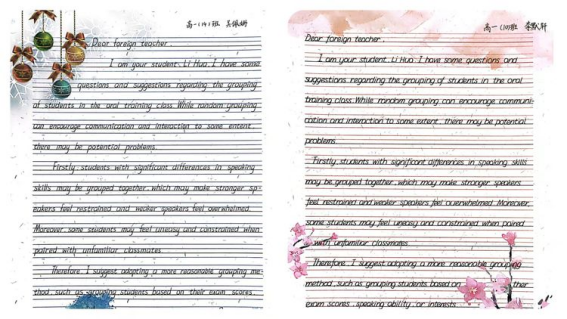 高一(4)班
Dear foreign teacher,
I am your student, Li Hua. I have some
questions and suggestions regarding the grouping
of students in the oral training class. While random grouping
can encourage communication and interaction to some extent,
there may be potential problems.
Firstly, students with significant differences in speaking
skills may be grouped together, which may make stronger sp-
eakers feel restrained and weaker speakers feel overwhelmed.
Moreover, some students may feel uneasy and constrained when
paired with unfamiliar classmates.
Therefore, I suggest adopting a more reasonable grouping me-
thod, such as grouping students based on their exam scores,
高一 班
Dear foreign teacher,
I am your student, Li Hua. I have some questions and
suggestions regarding the grouping of students in the oral
training class. While random grouping can encourage communi-
cation and interaction to some extent, there may be potential
problems.
Firstly, students with significant differences in speaking skills
may be grouped together, which may make stronger speakers
feel restrained and weaker speakers feel overwhelmed. Moreover,
some students may feel uneasy and constrained when paired
with unfamiliar classmates.
Therefore, I suggest adopting a more reasonable grouping
method, such as grouping students based on ther
exam scores, speaking ability, or interests